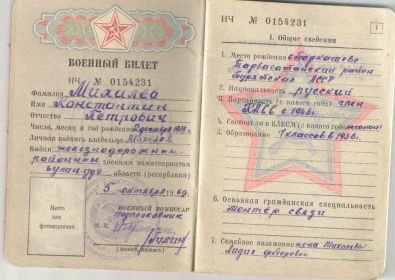 ВОЕННЫЙ БИЛЕТ
НЧ № 0154231
Фамилия Михалев
Имя Константин
Отчество Петрович
Число, месяц и год рождения
Личная подпись владельца
Выдан железнодорожным
районным военным комиссариатом
области (республики)
5 октября 1969.
ВОЕННЫЙ КОМИССАР
подполковник
Место
для
фотокарточки
М. П.
НЧ № 0154231
1
I. Общие сведения
1. Место рождения
Тарбагатайский район
Бурятская АССР
2. Национальность русский
3. Партийность (с какого года) член
КПСС с 1946г.
4. Состоял в ВЛКСМ (с какого года)
5. Образование 7 классов в 1936г.
6. Основная гражданская специальность
монтер связи
7. Семейное положение жена Михалева
Лидия